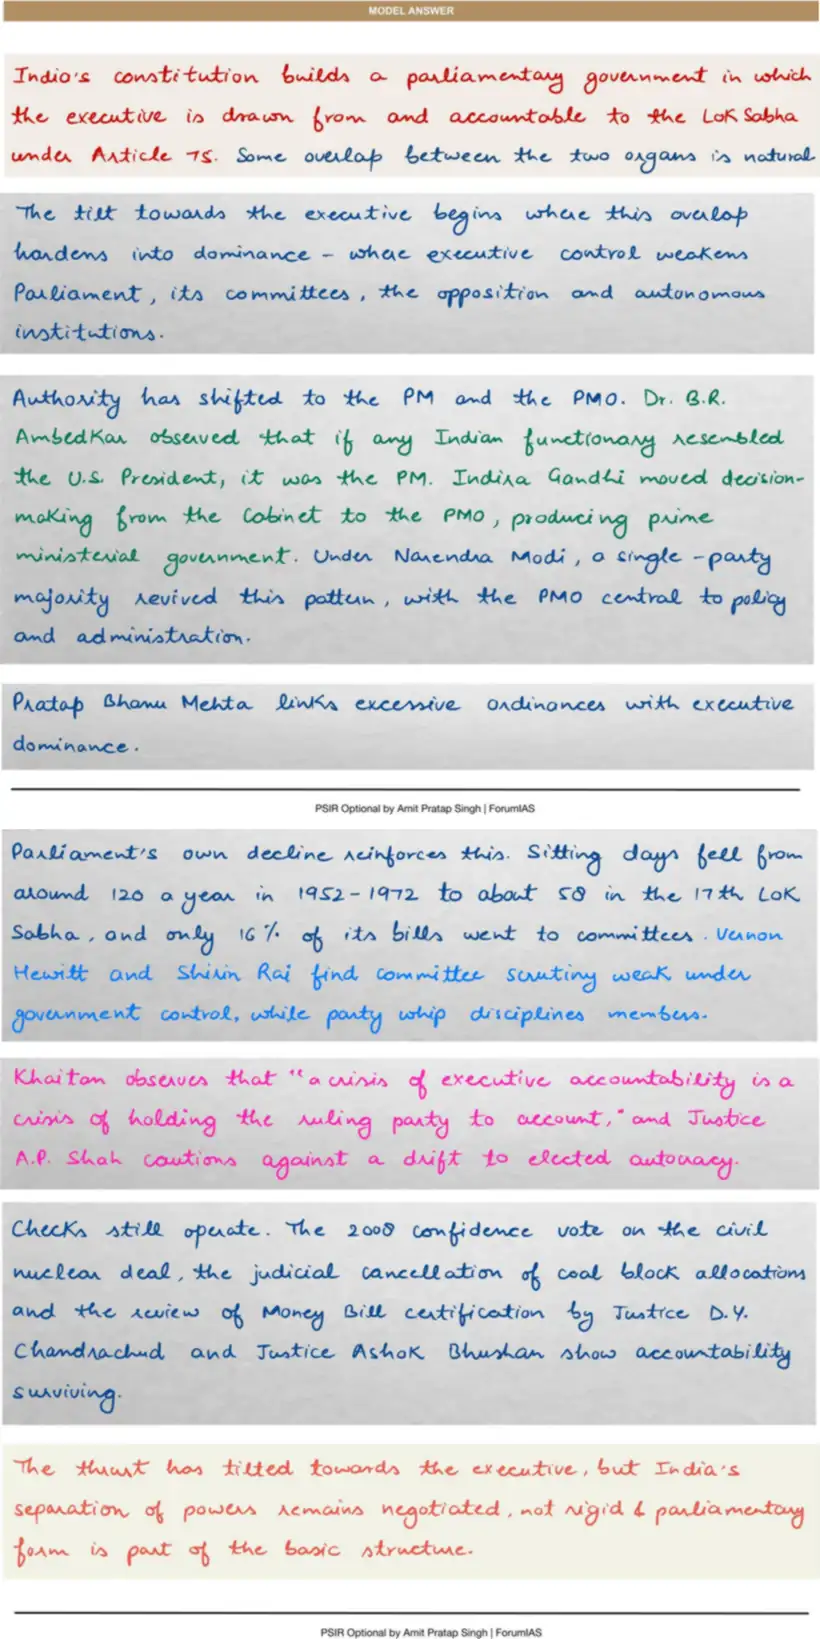 MODEL ANSWER
India's constitution builds a parliamentary government in which
the executive is drawn from and accountable to the Lok Sabha
under Article 75. Some overlap between the two organs is natural
The tilt towards the executive begins where this overlap
hardens into dominance - where executive control weakens
Parliament, its committees, the opposition and autonomous
institutions.
Authority has shifted to the PM and the PMO. Dr. B.R.
Ambedkar observed that if any Indian functionary resembled
the U.S. President, it was the PM. Indira Gandhi moved decision-
making from the Cabinet to the PMO, producing prime
ministerial government. Under Narendra Modi, a single-party
majority revived this pattern, with the PMO central to policy
and administration.
Pratap Bhanu Mehta links excessive ordinances with executive
dominance.
PSIR Optional by Amit Pratap Singh | ForumIAS
Parliament's own decline reinforces this. Sitting days fell from
around 120 a year in 1952-1972 to about 58 in the 17th Lok
Sabha, and only 16% of its bills went to committees. Vernon
Hewitt and Shirin Rai find committee scrutiny weak under
government control, while party whip disciplines members.
Khaitan observes that "a crisis of executive accountability is a
crisis of holding the ruling party to account," and Justice
A.P. Shah cautions against a drift to elected autocracy.
Checks still operate. The 2008 confidence vote on the civil
nuclear deal, the judicial cancellation of coal block allocations
and the review of Money Bill certification by Justice D.Y.
Chandrachud and Justice Ashok Bhushan show accountability
surviving.
The thrust has tilted towards the executive, but India's
separation of powers remains negotiated, not rigid & parliamentary
form is part of the basic structure.
PSIR Optional by Amit Pratap Singh | ForumIAS